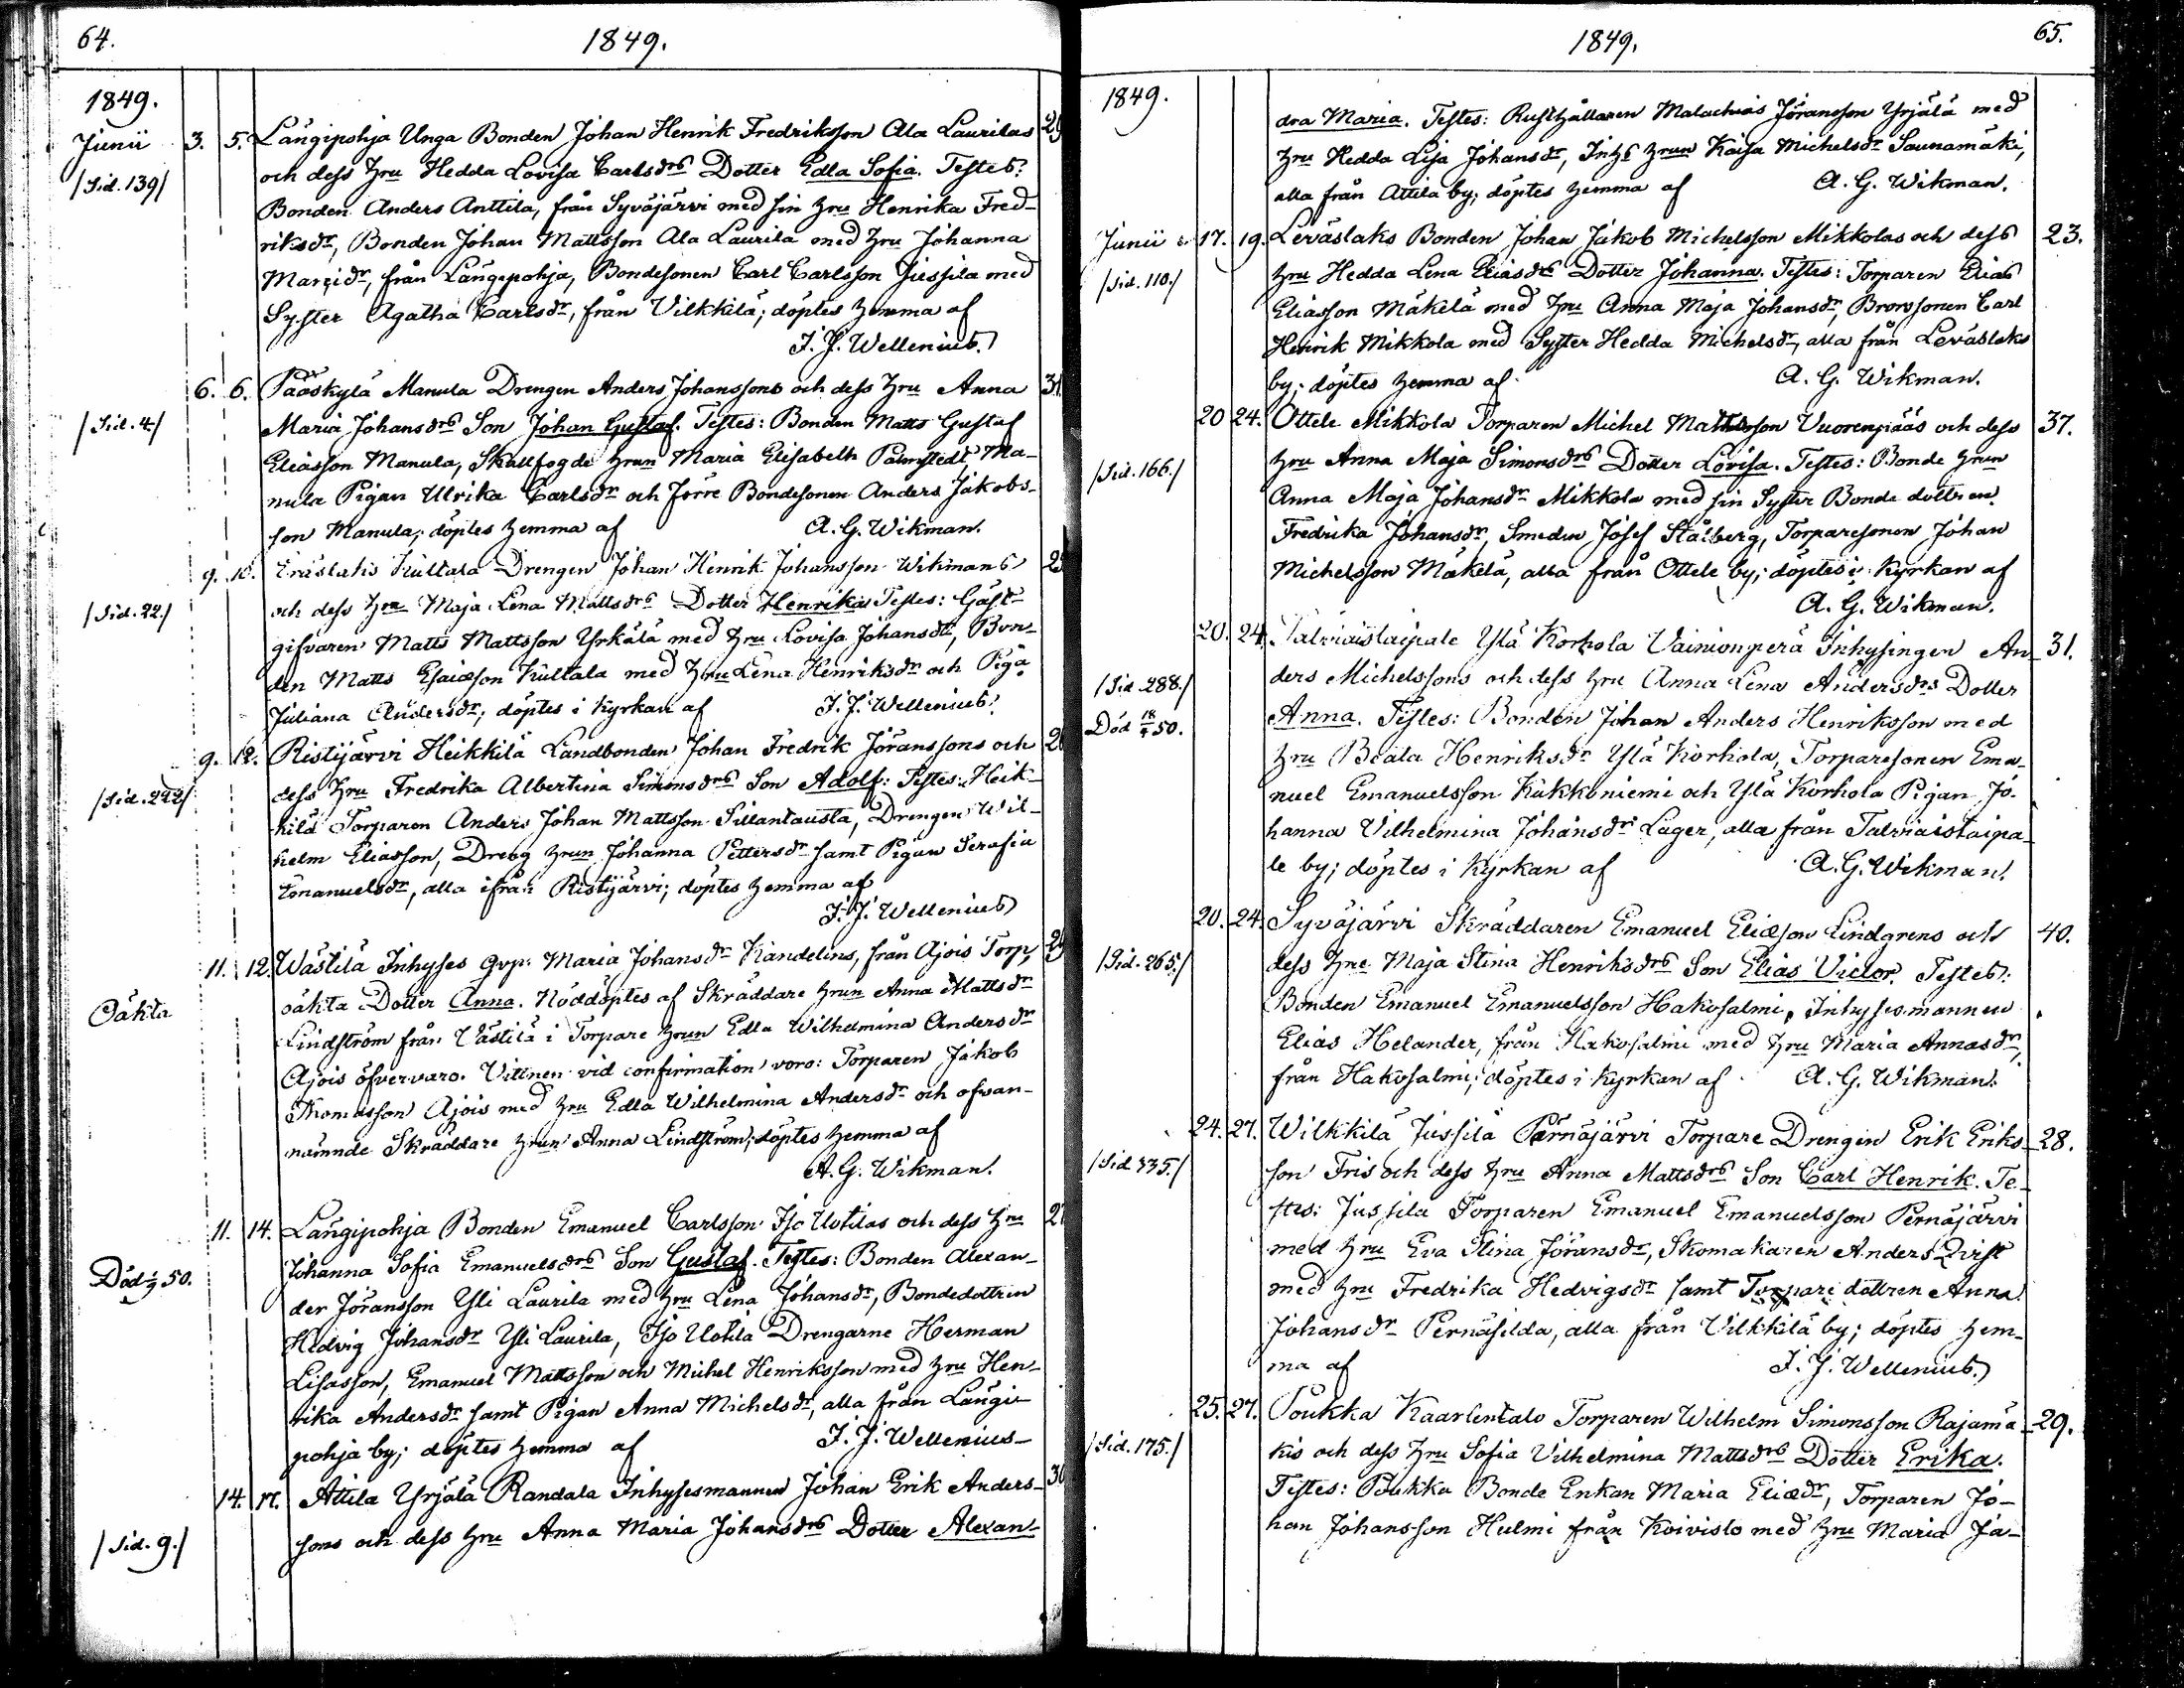 64.
1849.
1849.
Junii 3. 5. Långipohja Unga Bonden Johan Henrik Fredriksson Ala Laurilas
/Sid. 139/ och dess hru Hedda Lovisa Carlsdrs Dotter Edla Sofia. Testes:
Bonden Anders Anttila, från Syväjärvi med sin hru Henrika Fred-
riksdr, Bonden Johan Mattsson Ala Laurila med hru Johanna
dr, från Långepohja, Bondesonen Carl Carlsson Jussila med
Syster Agatha Carlsdr, från Vilkkilä; döptes hemma af
J. J. Wellenius.
6. 6. Pääskylä Manula Drengen Anders Johanssons och dess hru Anna 31
/Sid. 4/ Maria Johansdrs Son Johan Gustaf. Testes: Bonden Matts Gustaf
Eliasson Manula, Skallfogde hrun Maria Elisabeth Palmstedt Ma-
nula Pigan Ulrika Carlsdr och förre Bondesonen Anders Jakobs-
son Manula; döptes hemma af A. G. Wikman.
9. 10. Eräslahs Kultala Drengen Johan Henrik Johansson Wikmans
/Sid. 22./ och dess hru Maja Lena Mattsdrs Dotter Henrika Testes: Gäst-
gifvaren Matts Mattsson Yrkälä med hru Lovisa Johansdr, Bon-
den Matts Esaiæson Kultala med hru Lena Henriksdr och Piga
Juliana Andersdr; döptes i kyrkan af J. J. Wellenius.
9. 12. Ristijärvi Heikkilä Landbonden Johan Fredrik Jöranssons och
/Sid. 222/ dess hru Fredrika Albertina Simonsdrs Son Adolf: Testes: Heik-
kilä Torparen Anders Johan Mattsson Sillantausta, Drengen Wil-
helm Eliasson, Dreng hrun Johanna Pettersdr samt Pigan Serafia
Emanuelsdr, alla ifrån Ristijärvi; döptes hemma af
J. J. Wellenius
11. 12. Wästilä Inhyses qvp: Maria Johansdr Kandelins, från Ajois Torp,
Oäkta oäkta Dotter Anna. Nöddöptes af Skräddare hrun Anna Mattsdr
Lindström från Västilä i Torpare hrun Edla Wilhelmina Andersdr
Ajois öfvervaro. Vittnen vid confirmation voro: Torparen Jakob
Thomasson Ajois med hru Edla Wilhelmina Andersdr och ofvan-
nämnde Skräddare hrun Anna Lindström; döptes hemma af
A. G. Wikman.
11. 14. Långipohja Bonden Emanuel Carlsson Iso Uotilas och dess hru
Johanna Sofia Emanuelsdrs Son Gustaf. Testes: Bonden Alexan-
Död 50. der Jöransson Yli Laurila med hru Lena Johansdr, Bondedottren
Hedvig Johansdr Yli Laurila, Iso Uotila Drengarne Herman
Lisasson, Emanuel Mattsson och Michel Henriksson med hru Hen-
rika Andersdr samt Pigan Anna Michelsdr, alla från Långi-
pohja by; döptes hemma af J. J. Wellenius
14. 17. Attila Yrjälä Randala Inhysesmannen Johan Erik Anders-
/Sid. 9./ sons och dess hru Anna Maria Johansdrs Dotter Alexan-
1849.
65.
1849.
dra Maria. Testes: Rusthållaren Malachias Jöransson Yrjälä med
hru Hedda Lisa Johansdr, Inhs hrun Kaisa Michelsdr Saunamäki,
alla från Attila by; döptes hemma af A. G. Wikman.
Junii 17. 19. Leväslaks Bonden Johan Jakob Michelsson Mikkolas och dess 23.
/Sid. 110./ hru Hedda Lena Eliasdrs Dotter Johanna. Testes: Torparen Elias
Eliasson Mäkelä med hru Anna Maja Johansdr, Brorssonen Carl
Henrik Mikkola med Syster Hedda Michelsdr, alla från Leväslaks
by; döptes hemma af A. G. Wikman.
20 24. Ottele Mikkola Torparen Michel Mattsson Vuorenpääs och dess 37.
/Sid. 166./ hru Anna Maja Simonsdrs Dotter Lovisa. Testes: Bonde hrun
Anna Maja Johansdr Mikkola med sin Syster Bonde dottren
Fredrika Johansdr, Smeden Josef Stålberg, Torparesonen Johan
Michelsson Mäkelä, alla från Ottele by; döptes i Kyrkan af
A. G. Wikman.
20. 24. Talviaistaipale Ylä Korhola Vainionperä Inhysingen An- 31.
/Sid 288./ ders Michelssons och dess hru Anna Lena Andersdrs Dotter
Död 18 50. Anna. Testes: Bonden Johan Anders Henriksson med
hru Beata Henriksdr Ylä Korhola, Torparesonen Ema-
nuel Emanuelsson Kukkoniemi och Ylä Korhola Pigan Jo-
hanna Vilhelmina Johansdr Lager, alla från Talviaistaipa-
le by; döptes i kyrkan af A. G. Wikman.
20. 24. Syväjärvi Skräddaren Emanuel Eliæson Lindgrens och 40.
/Sid. 265./ dess hru Maja Stina Henriksdrs Son Elias Victor. Testes:
Bonden Emanuel Emanuelsson Hakosalmi, Inhysesmannen
Elias Helander, från Hakosalmi med hru Maria Annasdr,
från Hakosalmi; döptes i kyrkan af A. G. Wikman.
24. 27. Wilkkilä Jussila Pärnäjärvi Torpare Drengen Erik Eriks- 28.
/Sid 335./ son Fris och dess hru Anna Mattsdrs Son Carl Henrik. Te-
stes: Jussila Torparen Emanuel Emanuelsson Pernäjärvi
med hru Eva Stina Jöransdr, Skomakaren Anders Qvist
med hru Fredrika Hedvigsdr samt Torpare dottren Anna
Johansdr Pernäsilda, alla från Vilkkilä by; döptes hem-
ma af J. J. Wellenius.
25. 27. Poukka Kaarlentalo Torparen Wilhelm Simonsson Rajamä- 29.
/Sid. 175./ kis och dess hru Sofia Vilhelmina Mattsdrs Dotter Erika.
Testes: Poukka Bonde Enkan Maria Eliædr, Torparen Jo-
han Johansson Hulmi från Koivisto med hru Maria Ja-